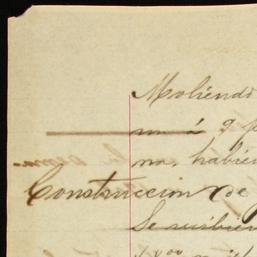 Moliendo
á 2 p
no, habien
Construccion de
Se recibier